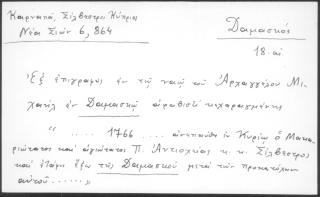 Καρναπᾶ, Σίλβεστρος Κύπριος
Νέα Σιών 6, 864
Δαμασκός
18. αἰ.
Ἐξ ἐπιγραφῆς ἐν τῷ ναῷ τοῦ Ἀρχαγγέλου Μι-
χαὴλ ἐν Δαμασκῷ ἀραβιστὶ κεχαραγμένης
" .... 1766 .... ἀνεπαύθη ἐν Κυρίῳ ὁ Μακα-
ριώτατος καὶ ἁγιώτατος Π. Ἀντιοχείας κ. κ. Σίλβεστρος
καὶ ἐτάφη ἔξω τῆς Δαμασκοῦ μετὰ τῶν προκατόχων
αὐτοῦ ..... »